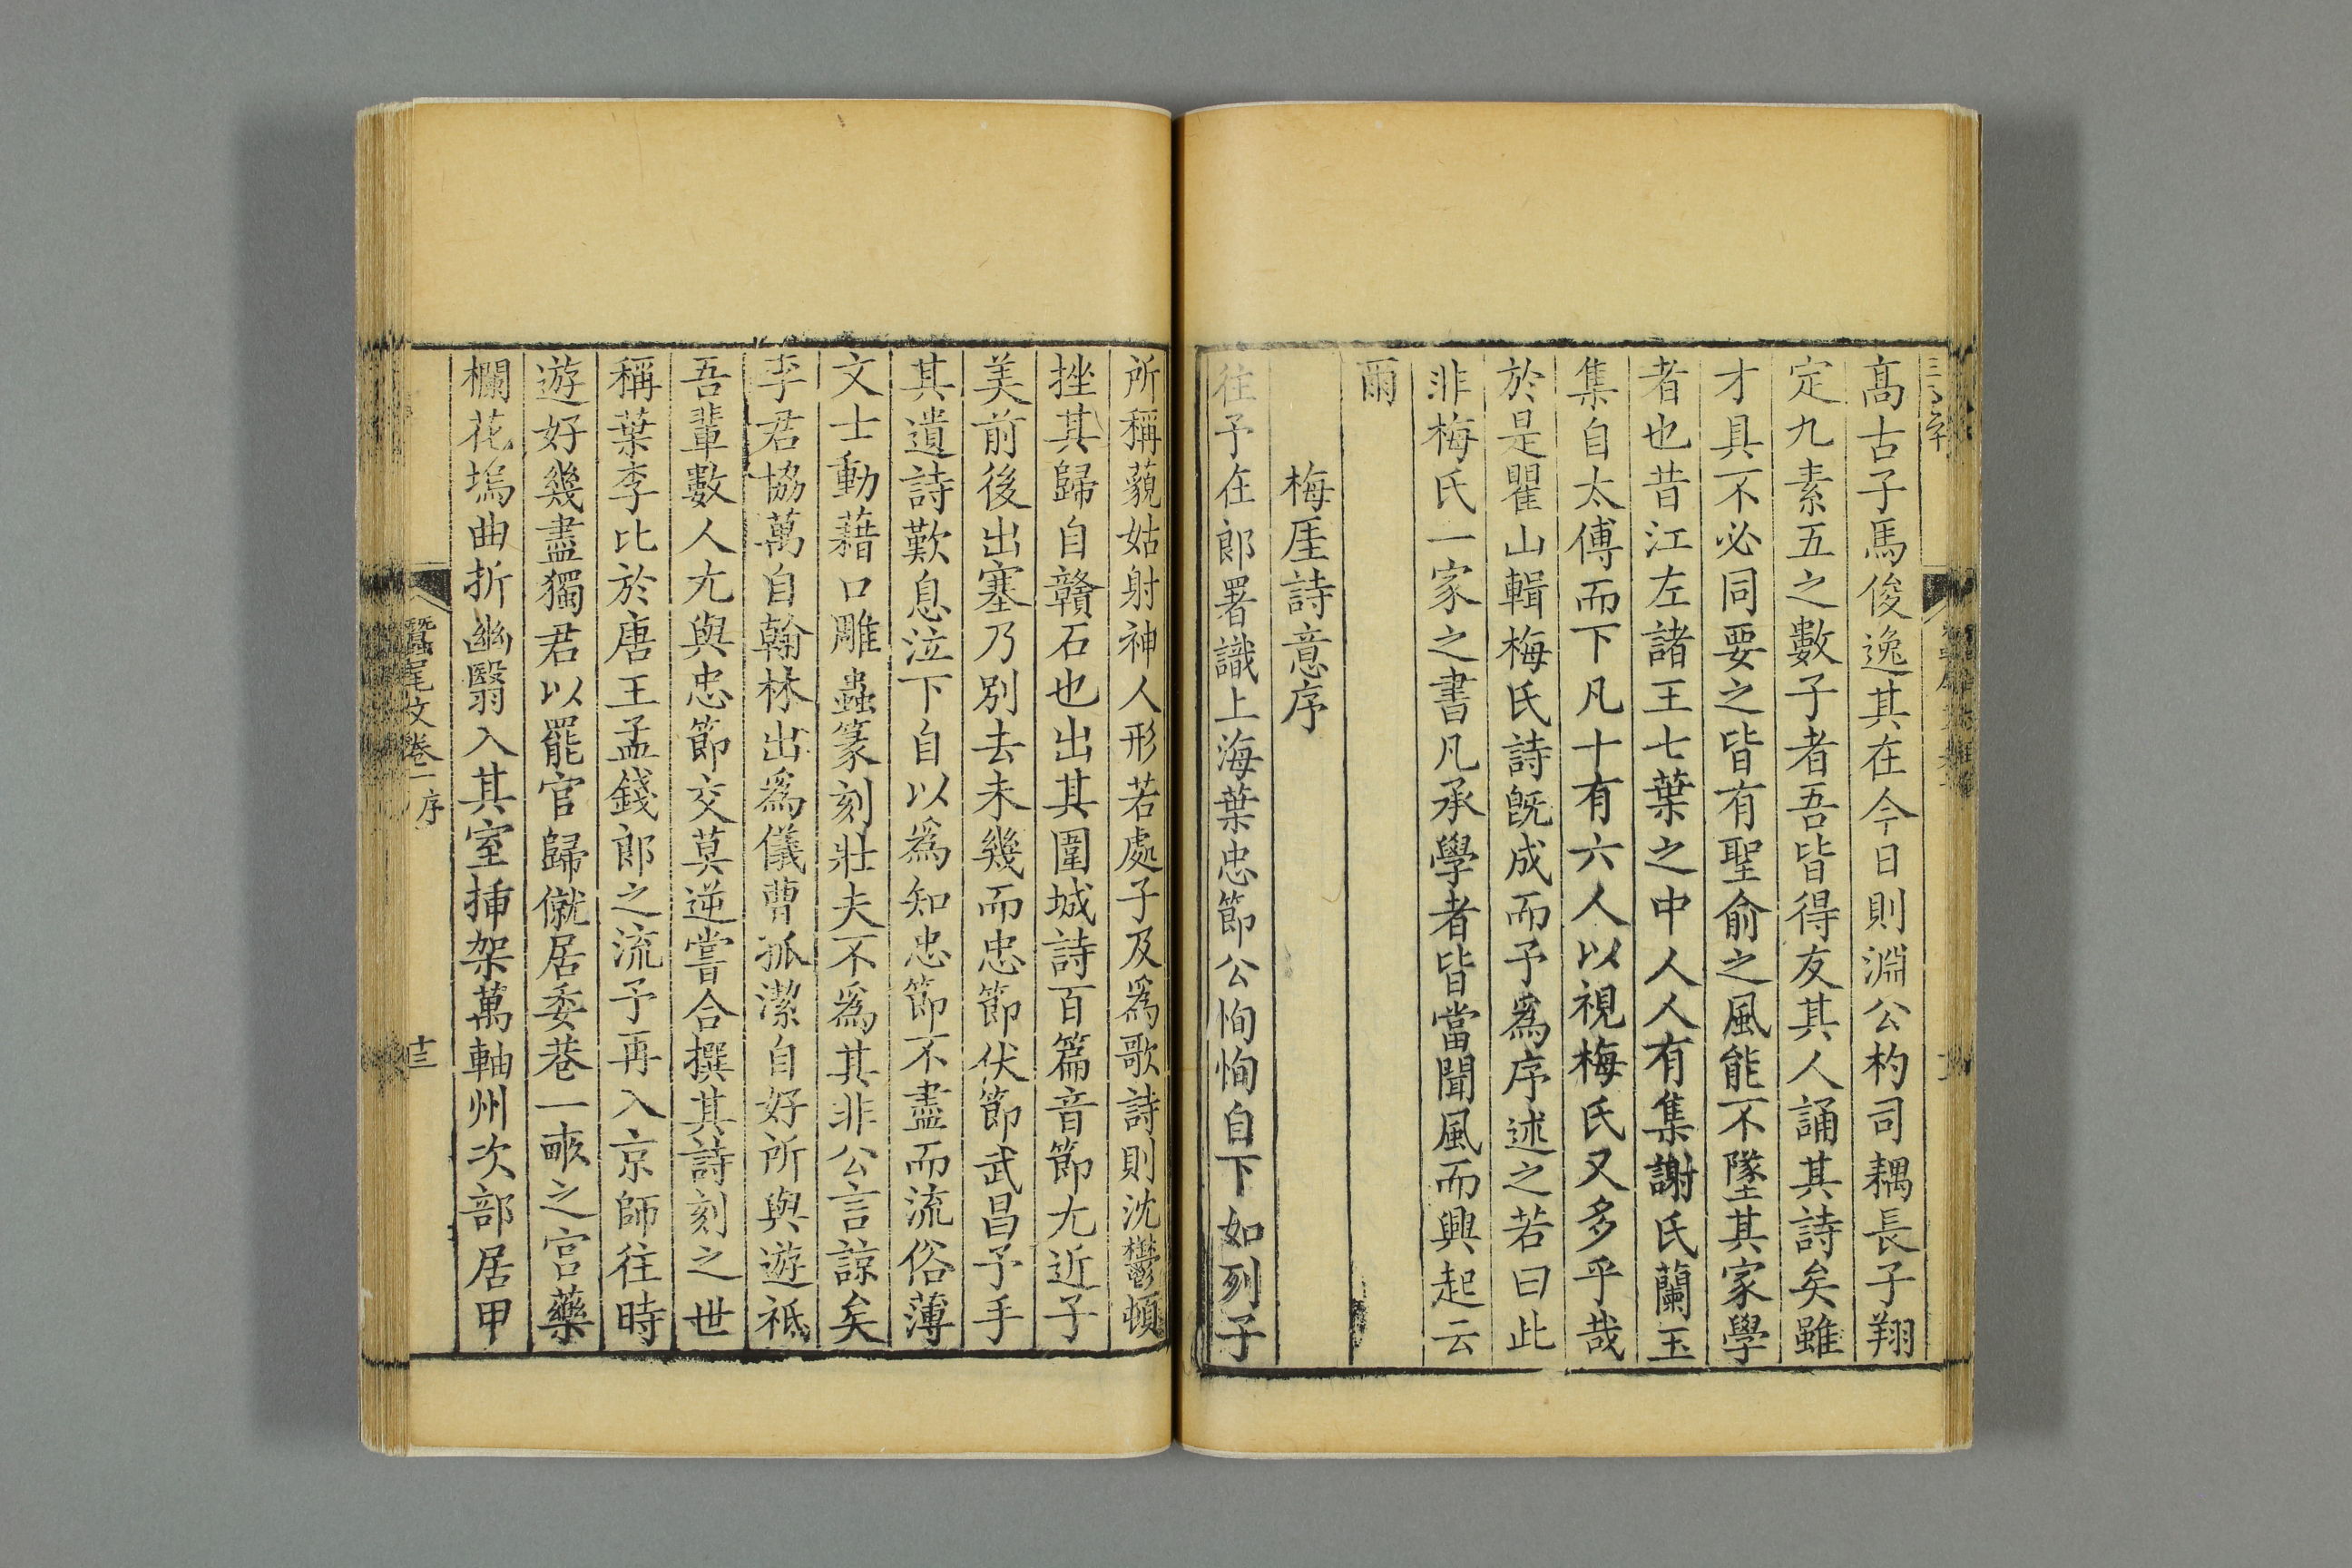 髙古子馬俊逸其在今日則淵公杓司耦長子翔
定九素五之數子者吾皆得友其人誦其詩矣雖
才具不必同要之皆有聖俞之風能不墜其家學
者也昔江左諸王七葉之中人人有集謝氏蘭玉
集自太傅而下凡十有六人以視梅氏又多乎哉
於是瞿山輯梅氏詩既成而予爲序述之若曰此
非梅氏一家之書凡承學者皆當聞風而興起云
爾
梅厓詩意序
往予在郎署識上海葉忠節公恂恂自下如列子
所稱藐姑射神人形若處子及爲歌詩則沈鬱頓
挫其歸自贛石也出其圍城詩百篇音節尤近子
美前後出塞乃別去未幾而忠節伏節武昌予手
其遺詩歎息泣下自以爲知忠節不盡而流俗薄
文士動藉口雕蟲篆刻壯夫不爲其非公言諒矣
李君協萬自翰林出爲儀曹孤潔自好所與遊祗
吾輩數人尤與忠節交莫逆嘗合撰其詩刻之世
稱葉李比於唐王孟錢郎之流予再入京師往時
遊好幾盡獨君以罷官歸僦居委巷一畞之宮藥
欄花塢曲折幽翳入其室揷架萬軸州次部居甲
蠶尾文卷一 序
十三